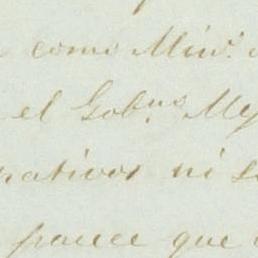 como Min.o
el Gob.no My
rativos ni s
parece que